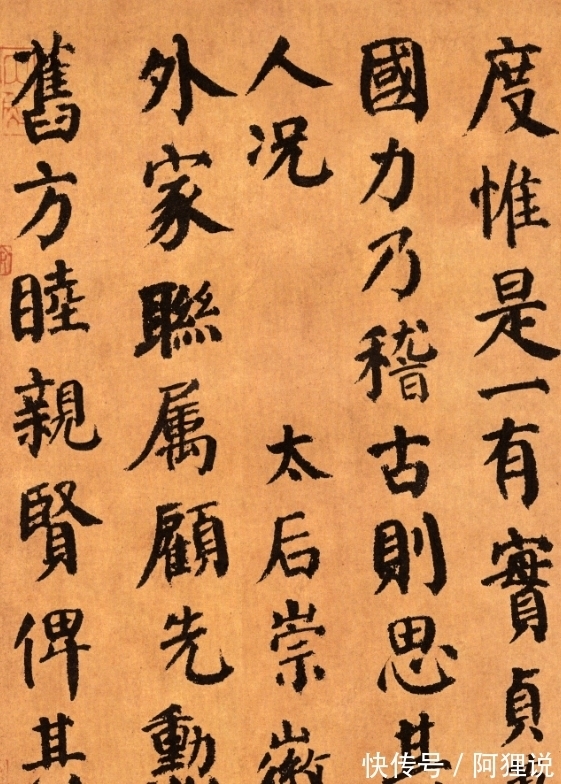 度惟是一有實貞
國力乃稽古則思其
人况 太后崇徽
外家聯属顧先動
舊方睦親賢俾其
快传号/阿狸说